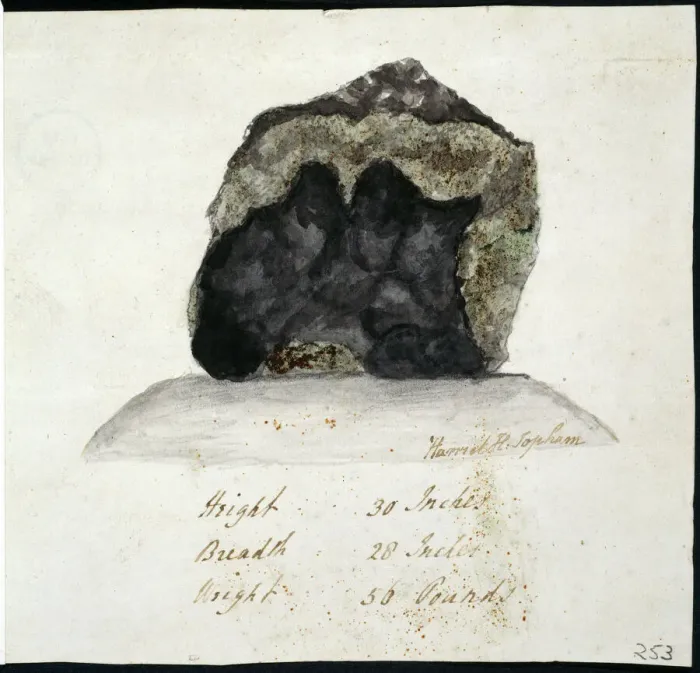 Harriet H. Topham
Height 30 Inches
Breadth 28 Inches
Weight 56 Pounds
253